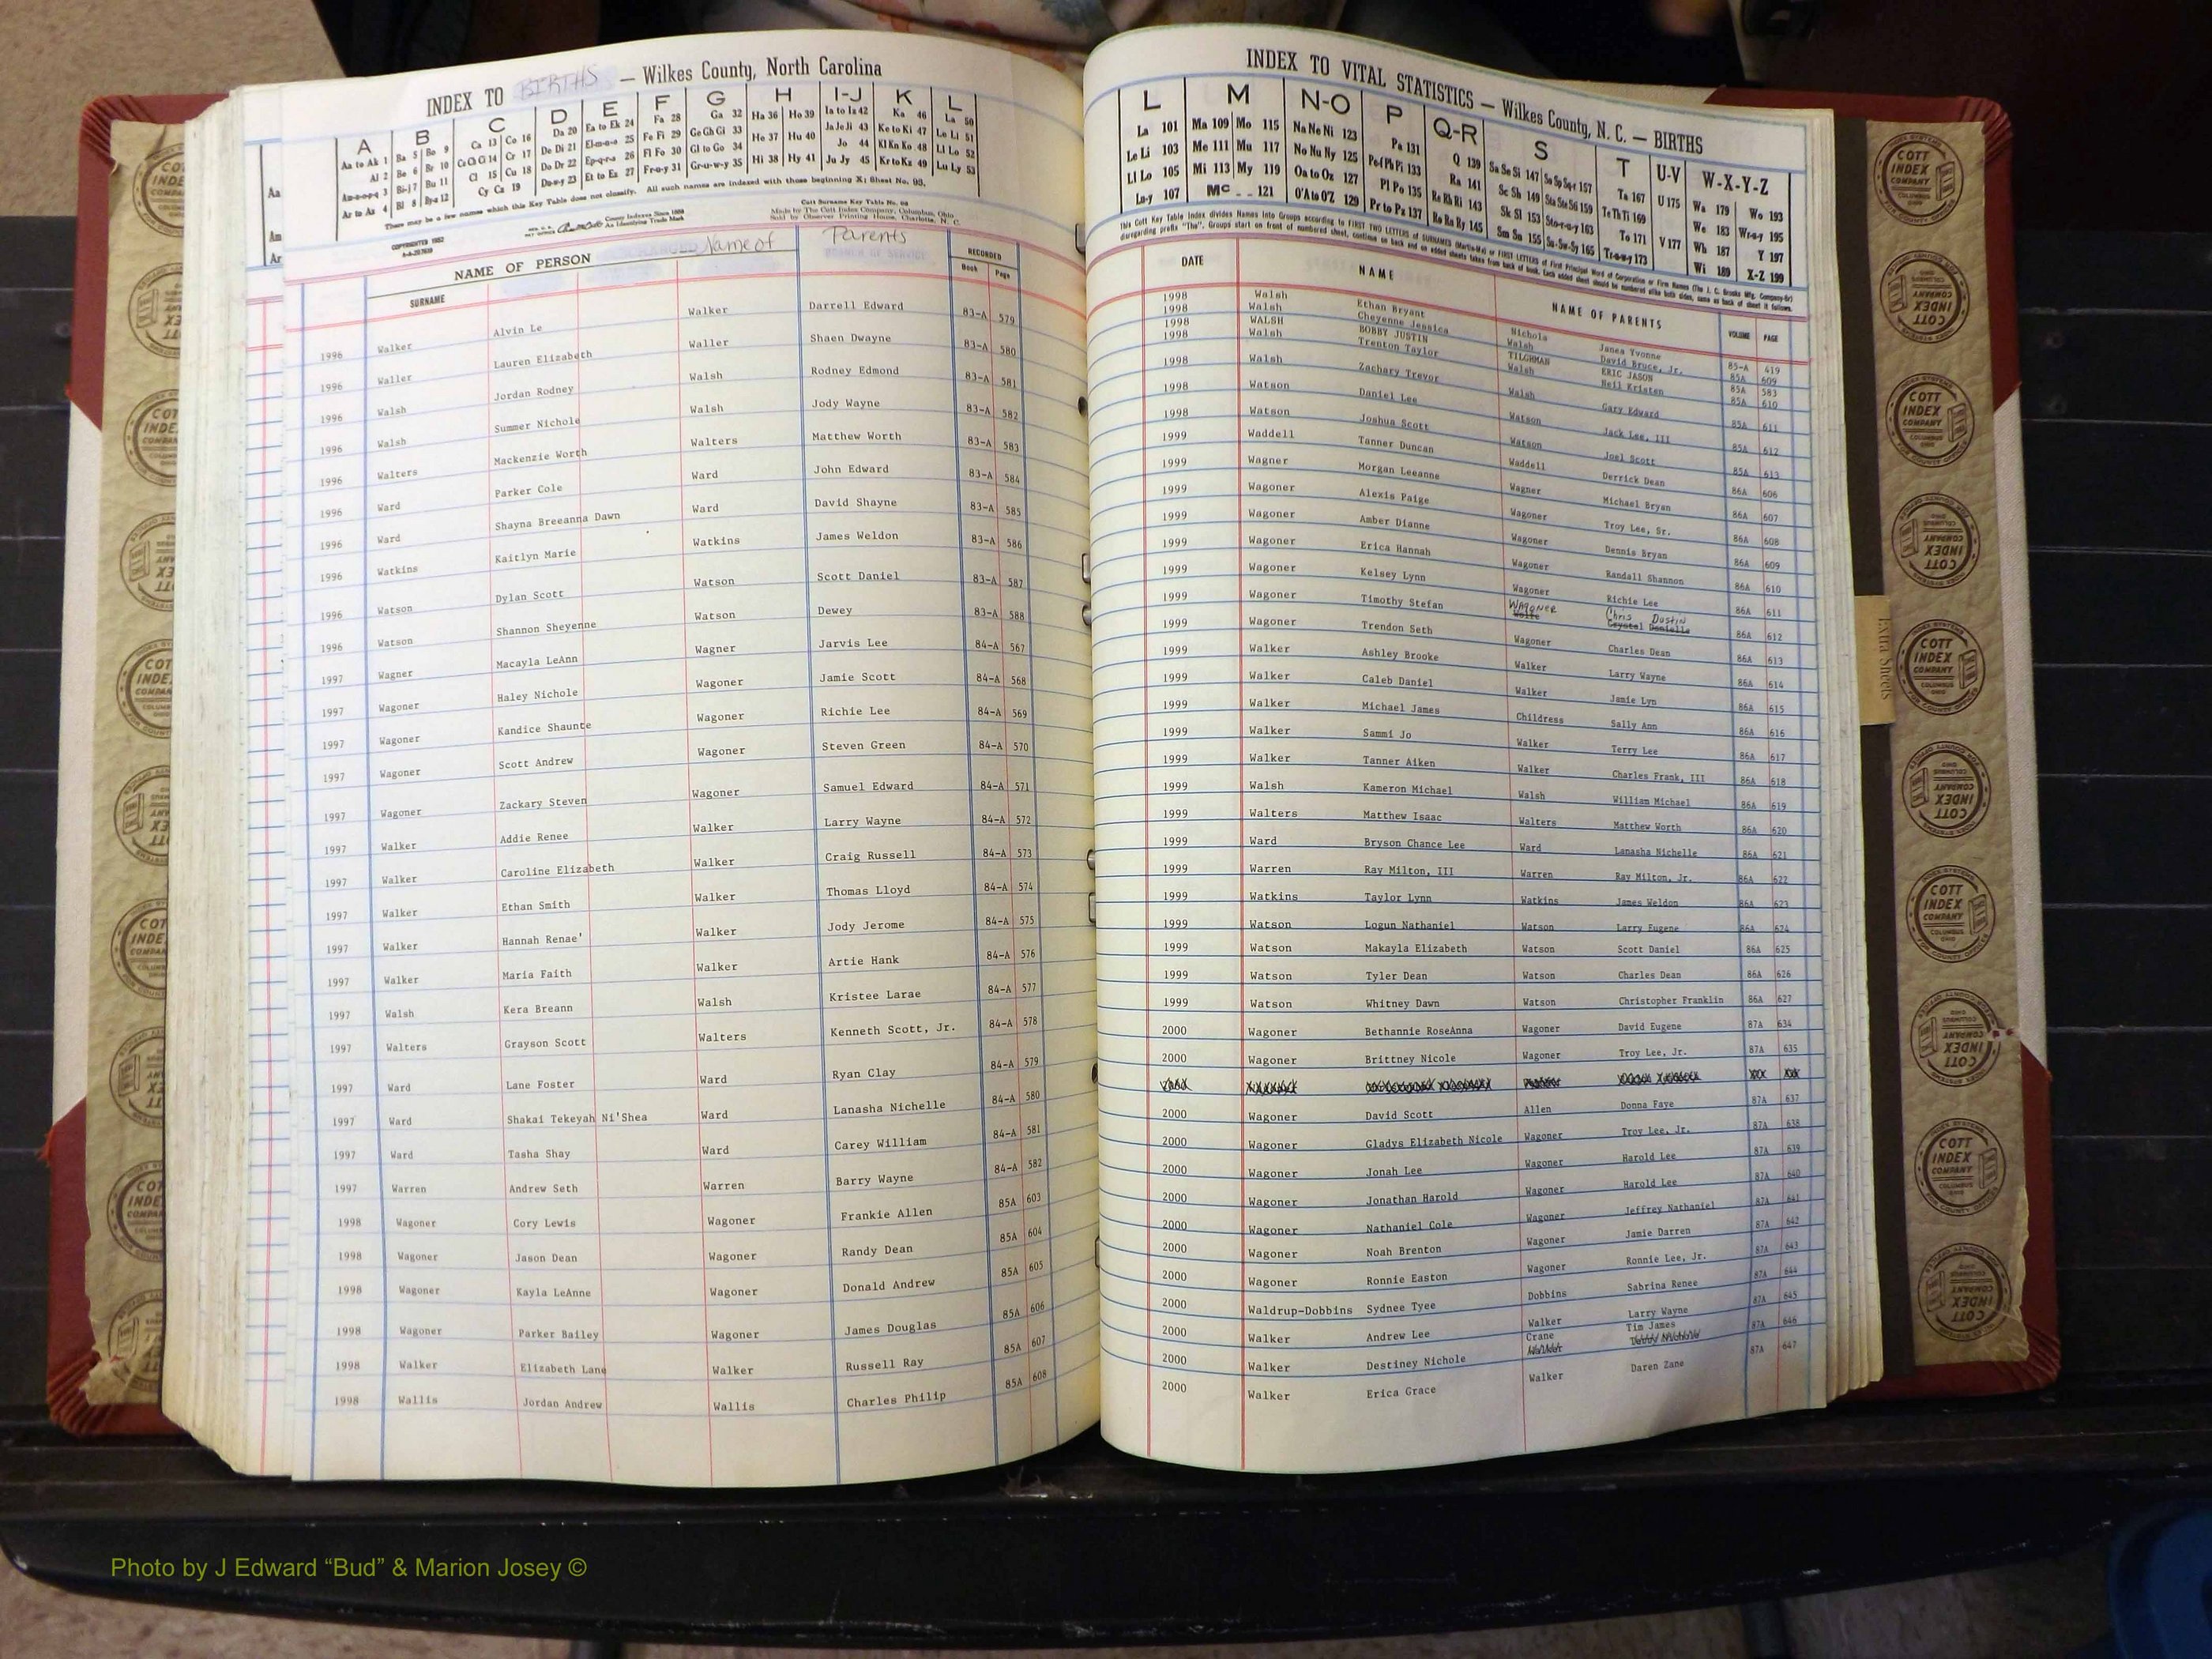 INDEX TO BIRTHS — Wilkes County, North Carolina
A B C D E F G H I-J K L
Aa to Ak 1 Ba 5 Bo 9 Ca 13 Co 16 Da 20 Ea to Ek 24 Fa 28 Ga 32 Ha 36 Ho 39 Ia to Iz 42 Ka 46 La 50
Al 2 Be 6 Br 10 Ce Ch Ci 14 Cr 17 De Di 21 El-m-n-o 25 Fe Fi 29 Ge Gh Gi 33 He 37 Hu 40 Ja Je Ji 43 Ke to Ki 47 Le Li 51
Am-n-o-p-q 3 Bi-j 7 Bu 11 Cl 15 Cu 18 Do Dr 22 Ep-q-r-s 26 Fl Fo 30 Gl to Go 34 Hi 38 Hy 41 Jo 44 Kl Kn Ko 48 Ll Lo 52
Ar to Az 4 Bl 8 By-z 12 Cy Cz 19 Du-w-y 23 Et to Ez 27 Fr-u-y 31 Gr-u-w-y 35 Ju Jy 45 Kr to Kz 49 Lu Ly 53
There may be a few names which this Key Table does not classify. All such names are indexed with those beginning X: Sheet No. 93.
Aa
Am
Ar
NAME OF PERSON Name of Parents RECORDED
SURNAME Book Page
1996 Walker Alvin Le Walker Darrell Edward 83-A 579
1996 Waller Lauren Elizabeth Waller Shaen Dwayne 83-A 580
1996 Walsh Jordan Rodney Walsh Rodney Edmond 83-A 581
1996 Walsh Summer Nichole Walsh Jody Wayne 83-A 582
1996 Walters Mackenzie Worth Walters Matthew Worth 83-A 583
1996 Ward Parker Cole Ward John Edward 83-A 584
1996 Ward Shayna Breeanna Dawn Ward David Shayne 83-A 585
1996 Watkins Kaitlyn Marie Watkins James Weldon 83-A 586
1996 Watson Dylan Scott Watson Scott Daniel 83-A 587
1996 Watson Shannon Sheyenne Watson Dewey 83-A 588
1997 Wagner Macayla LeAnn Wagner Jarvis Lee 84-A 567
1997 Wagoner Haley Nichole Wagoner Jamie Scott 84-A 568
1997 Wagoner Kandice Shaunte Wagoner Richie Lee 84-A 569
1997 Wagoner Scott Andrew Wagoner Steven Green 84-A 570
1997 Wagoner Zackary Steven Wagoner Samuel Edward 84-A 571
1997 Walker Addie Renee Walker Larry Wayne 84-A 572
1997 Walker Caroline Elizabeth Walker Craig Russell 84-A 573
1997 Walker Ethan Smith Walker Thomas Lloyd 84-A 574
1997 Walker Hannah Renae' Walker Jody Jerome 84-A 575
1997 Walker Maria Faith Walker Artie Hank 84-A 576
1997 Walsh Kera Breann Walsh Kristee Larae 84-A 577
1997 Walters Grayson Scott Walters Kenneth Scott, Jr. 84-A 578
1997 Ward Lane Foster Ward Ryan Clay 84-A 579
1997 Ward Shakai Tekeyah Ni'Shea Ward Lanasha Nichelle 84-A 580
1997 Ward Tasha Shay Ward Carey William 84-A 581
1997 Warren Andrew Seth Warren Barry Wayne 84-A 582
1998 Wagoner Cory Lewis Wagoner Frankie Allen 85A 603
1998 Wagoner Jason Dean Wagoner Randy Dean 85A 604
1998 Wagoner Kayla LeAnne Wagoner Donald Andrew 85A 605
1998 Wagoner Parker Bailey Wagoner James Douglas 85A 606
1998 Walker Elizabeth Lane Walker Russell Ray 85A 607
1998 Wallis Jordan Andrew Wallis Charles Philip 85A 608
INDEX TO VITAL STATISTICS — Wilkes County, N. C. — BIRTHS
L M N-O P Q-R S T U-V W-X-Y-Z
La 101 Ma 109 Mo 115 Na Ne Ni 123 Pa 131 Q 139 Sa Se Si 147 So Sp Sq-r 157 Ta 167 U 175 Wa 179 Wo 193
Le Li 103 Me 111 Mu 117 No Nu Ny 125 Pe-f Ph Pi 133 Ra 141 Sc Sh 149 Sta Ste Sti 159 Te Th Ti 169 We 183 Wr-u-y 195
Ll Lo 105 Mi 113 My 119 Oa to Oz 127 Pl Po 135 Re Rh Ri 143 Sk Sl 153 Sto-r-u-y 163 To 171 V 177 Wh 187 Y 197
Lu-y 107 Mc 121 O'A to O'Z 129 Pr to Pz 137 Ro Ru Ry 145 Sm Sn 155 Su-Sw-Sy 165 Tr-u-w-y 173 Wi 189 X-Z 199
DATE NAME NAME OF PARENTS VOLUME PAGE
1998 Walsh Ethan Bryant Nichols Janea Yvonne 85-A 419
1998 Walsh Cheyenne Jessica Walsh David Bruce, Jr. 85A 609
1998 WALSH BOBBY JUSTIN TILGHMAN ERIC JASON 85A 583
1998 Walsh Trenton Taylor Walsh Neil Kristen 85A 610
1998 Walsh Zachary Trevor Walsh Gary Edward 85A 611
1998 Watson Daniel Lee Watson Jack Lee, III 85A 612
1998 Watson Joshua Scott Watson Joel Scott 85A 613
1999 Waddell Tanner Duncan Waddell Derrick Dean 86A 606
1999 Wagner Morgan Leeanne Wagner Michael Bryan 86A 607
1999 Wagoner Alexis Paige Wagoner Troy Lee, Sr. 86A 608
1999 Wagoner Amber Dianne Wagoner Dennis Bryan 86A 609
1999 Wagoner Erica Hannah Wagoner Randall Shannon 86A 610
1999 Wagoner Kelsey Lynn Wagoner Richie Lee 86A 611
1999 Wagoner Timothy Stefan WAGONER Chris Dustin 86A 612
Wolfe Crystal Danielle
1999 Wagoner Trendon Seth Wagoner Charles Dean 86A 613
1999 Walker Ashley Brooke Walker Larry Wayne 86A 614
1999 Walker Caleb Daniel Walker Jamie Lyn 86A 615
1999 Walker Michael James Childress Sally Ann 86A 616
1999 Walker Sammi Jo Walker Terry Lee 86A 617
1999 Walker Tanner Aiken Walker Charles Frank, III 86A 618
1999 Walsh Kameron Michael Walsh William Michael 86A 619
1999 Walters Matthew Isaac Walters Matthew Worth 86A 620
1999 Ward Bryson Chance Lee Ward Lanasha Nichelle 86A 621
1999 Warren Ray Milton, III Warren Ray Milton, Jr. 86A 622
1999 Watkins Taylor Lynn Watkins James Weldon 86A 623
1999 Watson Logun Nathaniel Watson Larry Eugene 86A 624
1999 Watson Makayla Elizabeth Watson Scott Daniel 86A 625
1999 Watson Tyler Dean Watson Charles Dean 86A 626
1999 Watson Whitney Dawn Watson Christopher Franklin 86A 627
2000 Wagoner Bethannie RoseAnna Wagoner David Eugene 87A 634
2000 Wagoner Brittney Nicole Wagoner Troy Lee, Jr. 87A 635
2000 Wagoner David Scott Allen Donna Faye 87A 637
2000 Wagoner Gladys Elizabeth Nicole Wagoner Troy Lee, Jr. 87A 638
2000 Wagoner Jonah Lee Wagoner Harold Lee 87A 639
2000 Wagoner Jonathan Harold Wagoner Harold Lee 87A 640
2000 Wagoner Nathaniel Cole Wagoner Jeffrey Nathaniel 87A 641
2000 Wagoner Noah Brenton Wagoner Jamie Darren 87A 642
2000 Wagoner Ronnie Easton Wagoner Ronnie Lee, Jr. 87A 643
2000 Waldrup-Dobbins Sydnee Tyee Dobbins Sabrina Renee 87A 644
2000 Walker Andrew Lee Walker Larry Wayne 87A 645
2000 Walker Destiney Nichole Crane Tim James 87A 646
2000 Walker Erica Grace Walker Daren Zane 87A 647
Extra Sheets
COTT INDEX COMPANY
Photo by J Edward “Bud” & Marion Josey ©